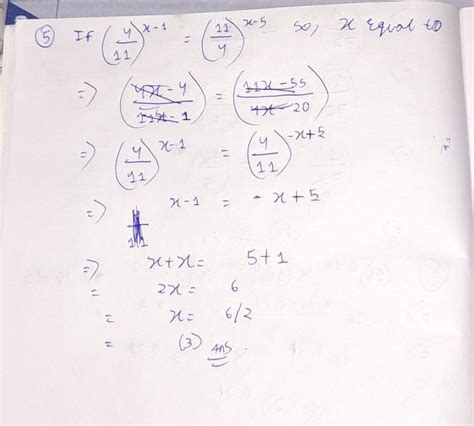 ⑤ If (4/11)^x-1 = (11/4)^x-5 so, x equal to.
=> (4x-4/11x-1) = (11x-55/4x-20)
=> (4/11)^x-1 = (4/11)^-x+5
=> x-1 = -x+5
=> x+x = 5+1
= 2x = 6
= x = 6/2
= (3) Ans